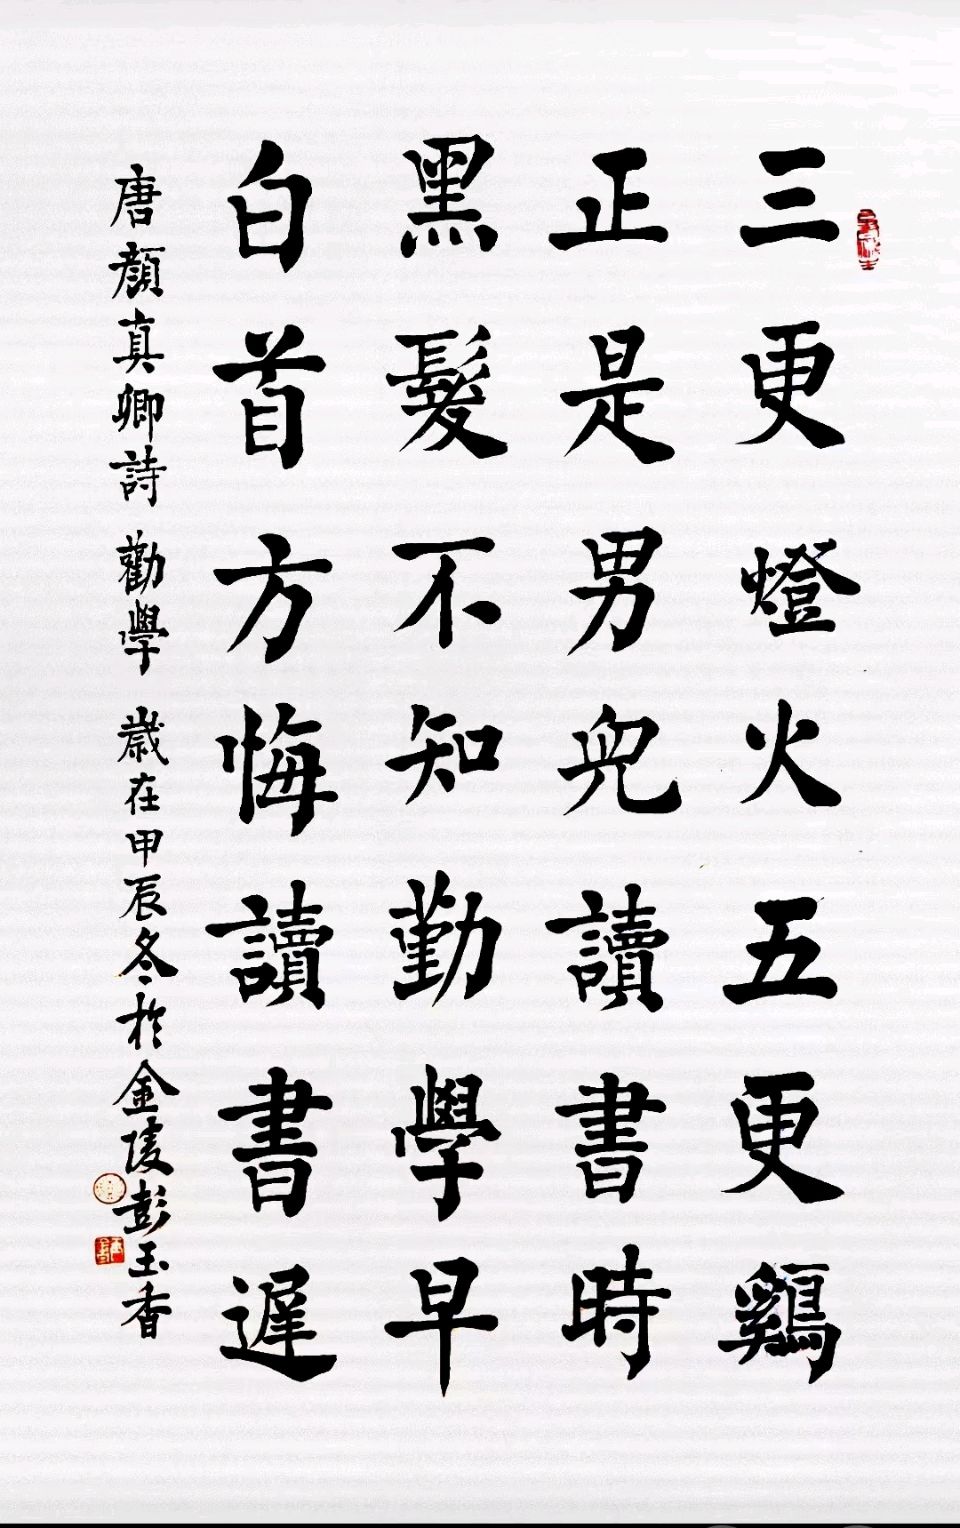 三更燈火五更鷄
正是男兒讀書時
黑髮不知勤學早
白首方悔讀書遲
唐顏真卿詩 勸學 歲在甲辰冬於金陵彭玉香